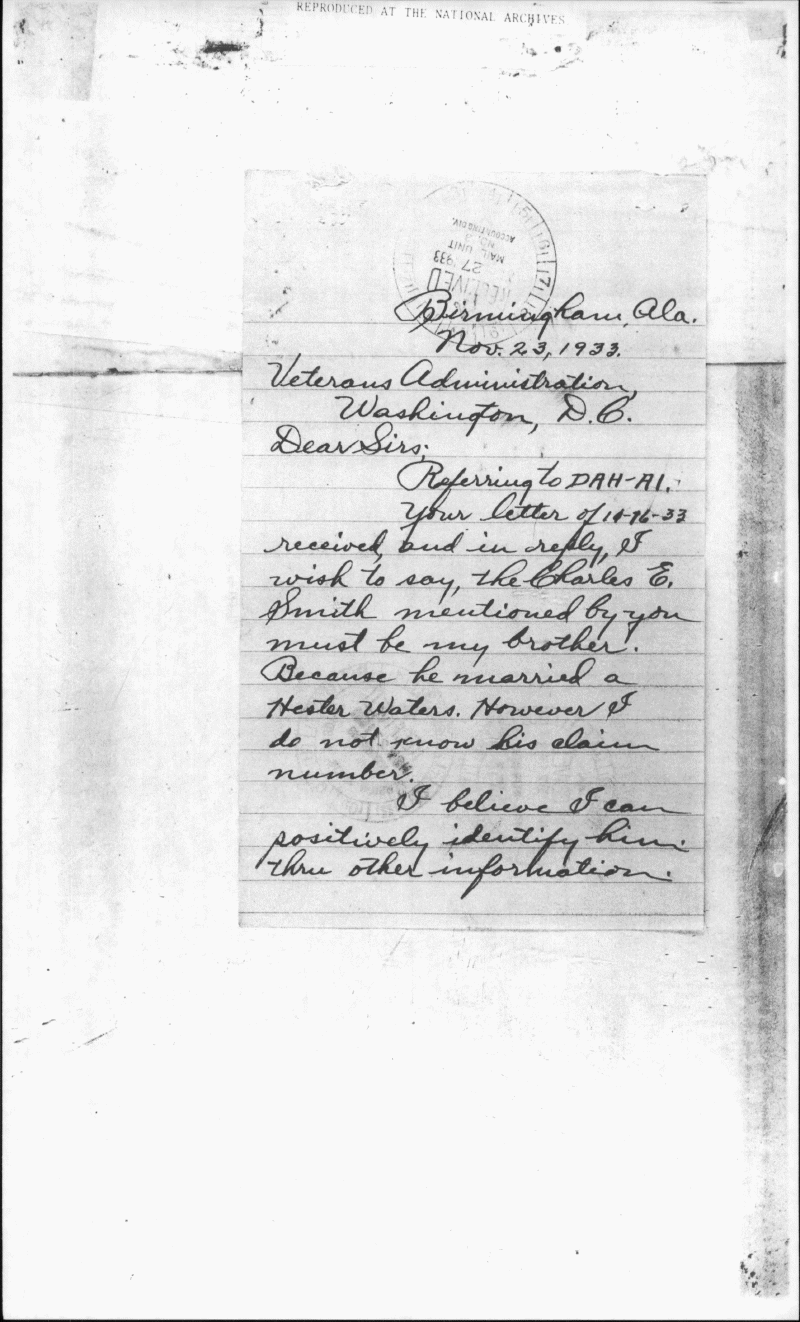 REPRODUCED AT THE NATIONAL ARCHIVES
RECEIVED
27 1933
MAIL UNIT
NO. 3
ACCOUNTING DIV.
Birmingham, Ala.
Nov. 23, 1933.
Veterans Administration,
Washington, D.C.
Dear Sirs;
Referring to DAH-A1.
Your letter of
received, and in reply, I
wish to say, the Charles E.
Smith mentioned by you
must be my brother.
Because he married a
Hester Waters. However I
do not know his claim
number.
I believe I can
positively identify him
thru other information.